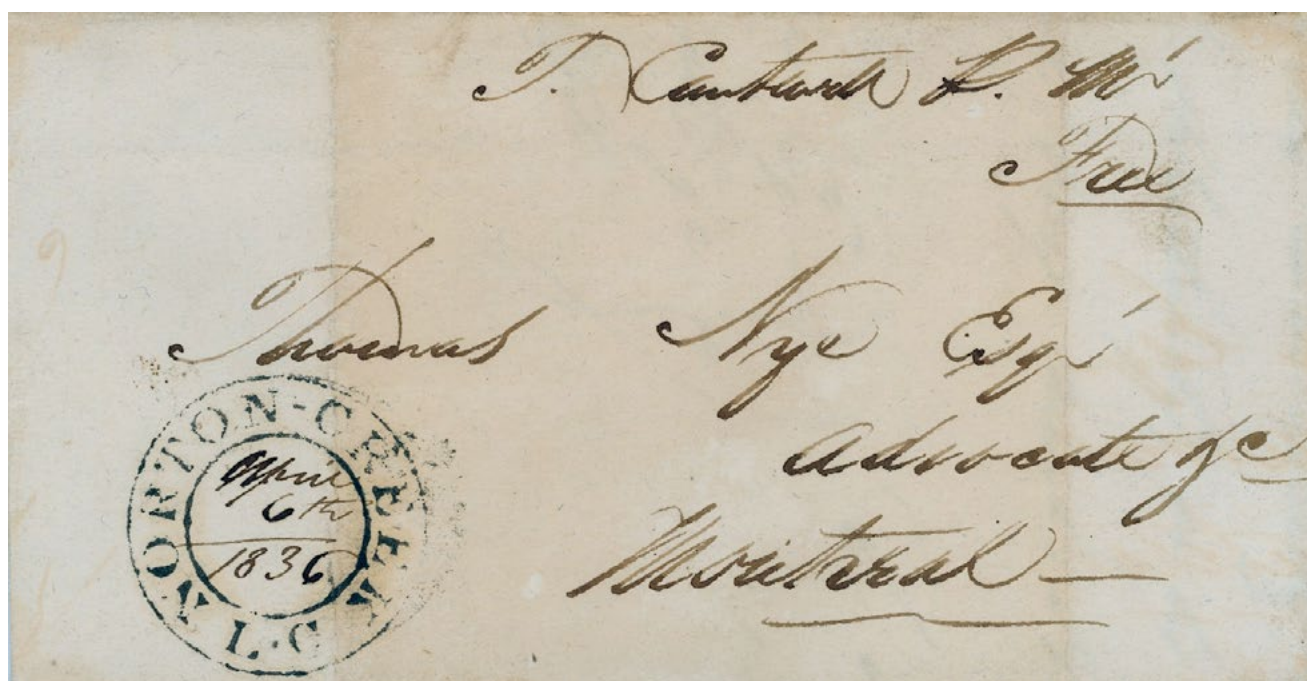 T. Cantwell P. Mr
Free
Thomas Nye Esqr
Advocate &c
Montreal
NORTON-CREEK L.C
April
6th
1836